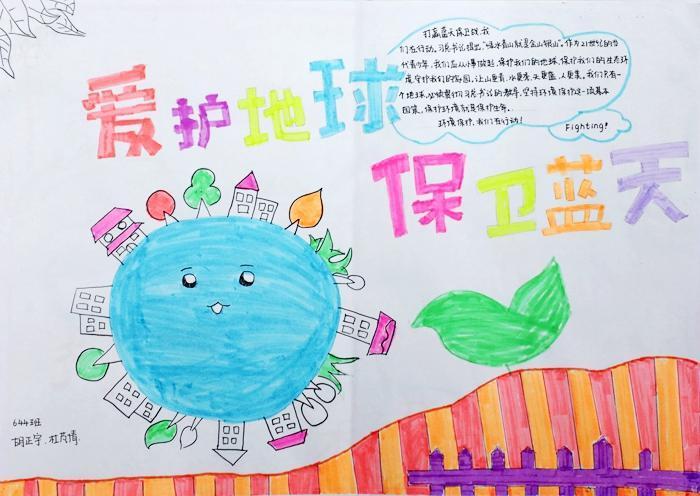 打赢蓝天保卫战,我
们在行动。习总书记提出"绿水青山就是金山银山"。作为21世纪的当
代青少年,我们应从小事做起,保护我们的地球,保护我们的生态环
境,守护我们的家园,让山更青,水更秀,天更蓝,人更美。我们只有一
个地球,必须要听习总书记的教导,坚持环境保护这一项基本
国策,保护环境就是保护生命。
环境保护,我们在行动!
Fighting!
爱护地球
保卫蓝天
644班
胡正宇.杜茂倩.